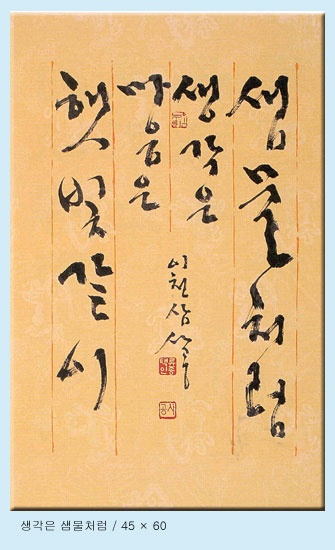 샘물처럼
생각은
마음은
햇빛같이
이천삼
생각은 샘물처럼 / 45 × 60